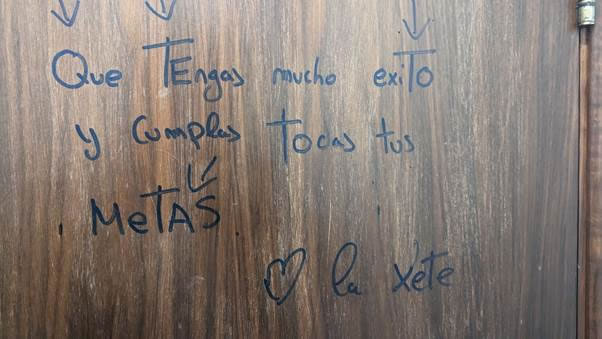 Que TEngas mucho exiTO
y Cumplas Tocas tus
MeTAS
la xete